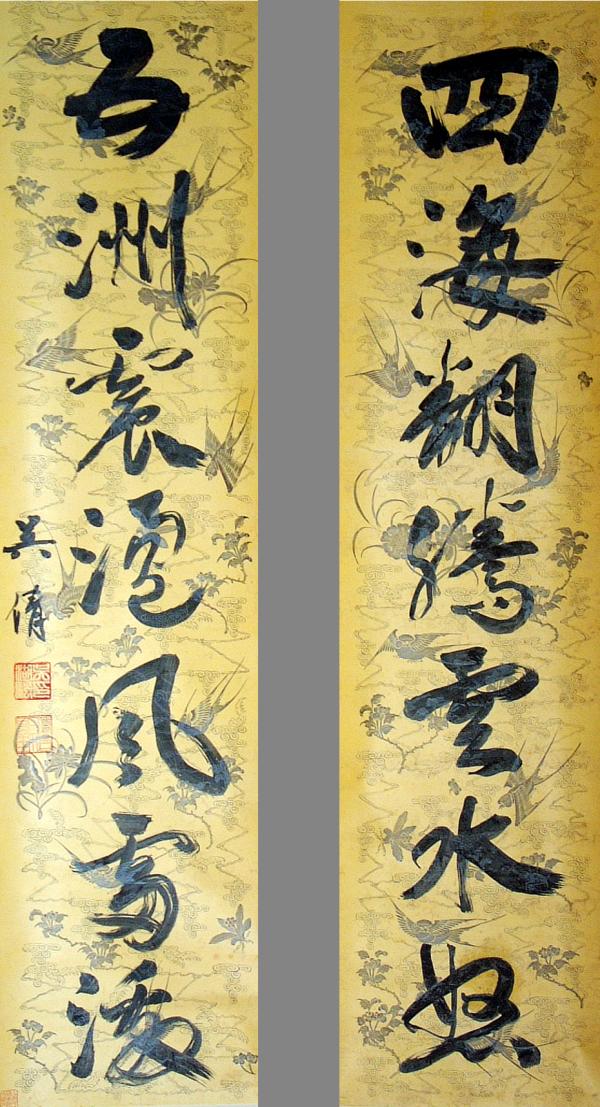 四海翻騰雲水怒
五洲震盪風雷激
吴倩